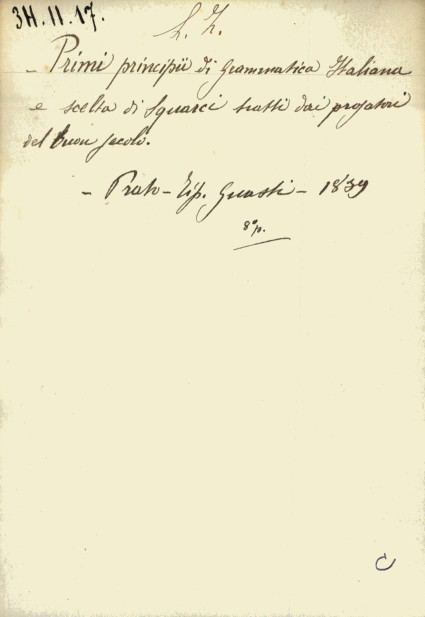 3H.11.17.
L. Z.
- Primi principii di Grammatica Italiana
e scelta di Squarci tratti dai prosatori
del buon secolo.
- Prato - Tip. Guasti - 1839
8º p.
C